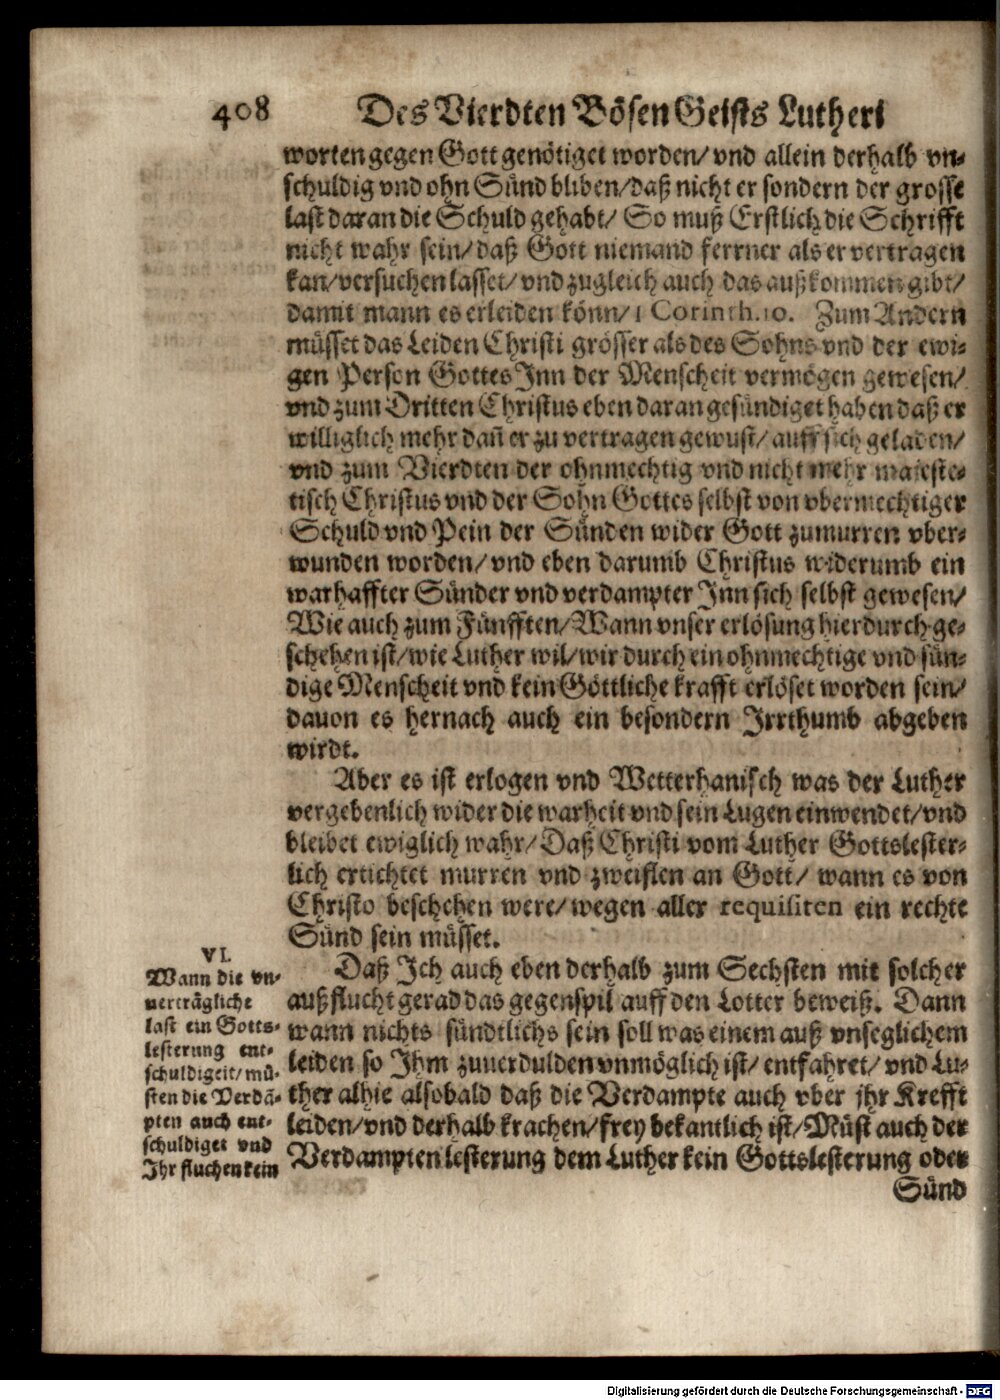 408 Des Vierdten Bösen Geists Lutheri
worten gegen Gott genötiget worden/ vnd allein derhalb vn-
schuldig vnd ohn Sünd bliben/ daß nicht er sondern der grosse
last daran die Schuld gehabt/ So muß Erstlich die Schrifft
nicht wahr sein/ daß Gott niemand ferrner als er vertragen
kan/ versuchen lasset/ vnd zugleich auch das außkommen gibt/
damit mann es erleiden könn/ 1 Corinth. 10. Zum Andern
müsset das Leiden Christi grösser als des Sohns vnd der ewi-
gen Person Gottes Inn der Menscheit vermögen gewesen/
vnd zum Dritten Christus eben daran gesündiget haben daß er
williglich mehr dañ er zu vertragen gewust/ auff sich geladen/
vnd zum Vierdten der ohnmechtig vnd nicht mehr maieste-
tisch Christus vnd der Sohn Gottes selbst von vbermechtiger
Schuld vnd Pein der Sünden wider Gott zumurren vber-
wunden worden/ vnd eben darumb Christus widerumb ein
warhaffter Sünder vnd verdampter Inn sich selbst gewesen/
Wie auch zum Fünfften/ Wann vnser erlösung hierdurch ge-
schehen ist/ wie Luther wil/ wir durch ein ohnmechtige vnd sün-
dige Menscheit vnd kein Göttliche krafft erlöset worden sein/
dauon es hernach auch ein besondern Irrthumb abgeben
wirdt.
Aber es ist erlogen vnd Wetterhanisch was der Luther
vergebenlich wider die warheit vnd sein Lugen einwendet/ vnd
bleibet ewiglich wahr/ Daß Christi vom Luther Gottslester-
lich ertichtet murren vnd zweiflen an Gott/ wann es von
Christo beschehen were/ wegen aller requisiten ein rechte
Sünd sein müsset.
Daß Ich auch eben derhalb zum Sechsten mit solcher
außflucht gerad das gegenspil auff den Lotter beweiß. Dann
wann nichts sündtlichs sein soll was einem auß vnseglichem
leiden so Ihm zuuerdulden vnmöglich ist/ entfahret/ vnd Lu-
ther alhie alsobald daß die Verdampte auch vber ihr Krefft
leiden/ vnd derhalb krachen/ frey bekantlich ist/ Müst auch der
Verdampten lesterung dem Luther kein Gottslesterung oder
Sünd
VI.
Wann die vn-
uerträgliche
last ein Gotts-
lesterung ent-
schuldigeit/ mü-
sten die Verdä-
pten auch ent-
schuldiget vnd
Ihr fluchen kein
Digitalisierung gefördert durch die Deutsche Forschungsgemeinschaft - DFG